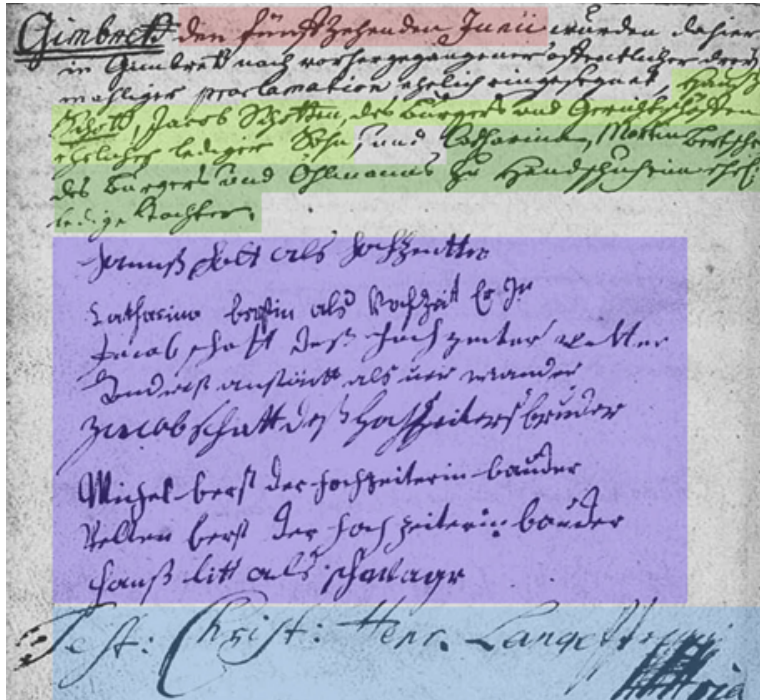 Gimbrett den fünfzehenden Junii wurden dahier
in Gimbrett nach vorhergegangener offentlicher drey
mahliger proclamation ehelich eingesegnet, Hanß
Schott, Jacob Schotten, des Burgers und Gerichtschöffen
ehelicher lediger Sohn, und Catharina, Martin Bertsche
des Burgers und Öhlmanns zu Handschuheim ehel:
ledige Tochter.
als hochzeitter
Catharina als
Jacob schott deß hoch zeiter vatter
als
Jacob schott deß hochzeiters bruder
Michel berst der hochzeiterin bruder
Velten berst der hoch zeiterin bruder
hanß litt als schwagr
Test: Christ: Henr. Lange